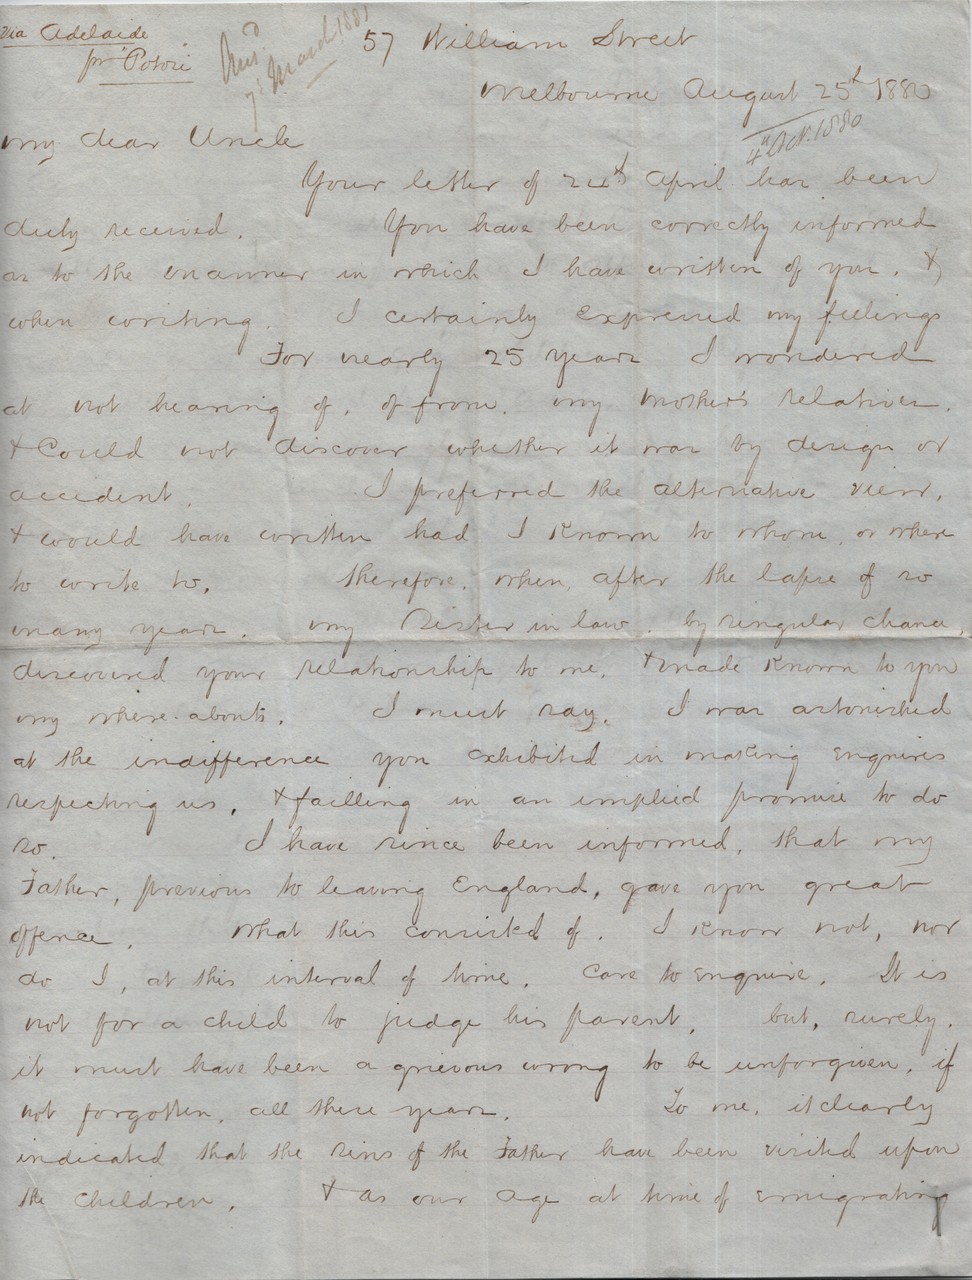 via Adelaide
pr "Potosi"
7th March 1881
57 William Street
Melbourne August 25th 1880
4th Oct. 1880
My dear Uncle
Your letter of 24th April has been
duly received. You have been correctly informed
as to the manner in which I have written of you. &
when writing. I certainly expressed my feelings
For nearly 25 years I wondered
at not hearing of, or from, my Mother's relatives.
& Could not discover whether it was by design or
accident. I preferred the alternative view,
& would have written had I Known to whom, or where
to write to. Therefore, when, after the lapse of so
many years, my Sister in law, by singular chance,
discovered your relationship to me, & made Known to you
my where-abouts. I must say, I was astonished
at the indifference you exhibited in making Enquires
respecting us, & failling in an implied promise to do
so. I have since been informed, that my
Father, previous to leaving England, gave you great
offence. What this consisted of, I Know not, nor
do I, at this interval of time, Care to Enquire. It is
not for a child to judge his parent, but, surely,
it must have been a grievous wrong to be unforgiven, if
not forgotten, all these years. To me, it clearly
indicated that the sins of the Father have been visited upon
the children. & as our age at time of Emigrating